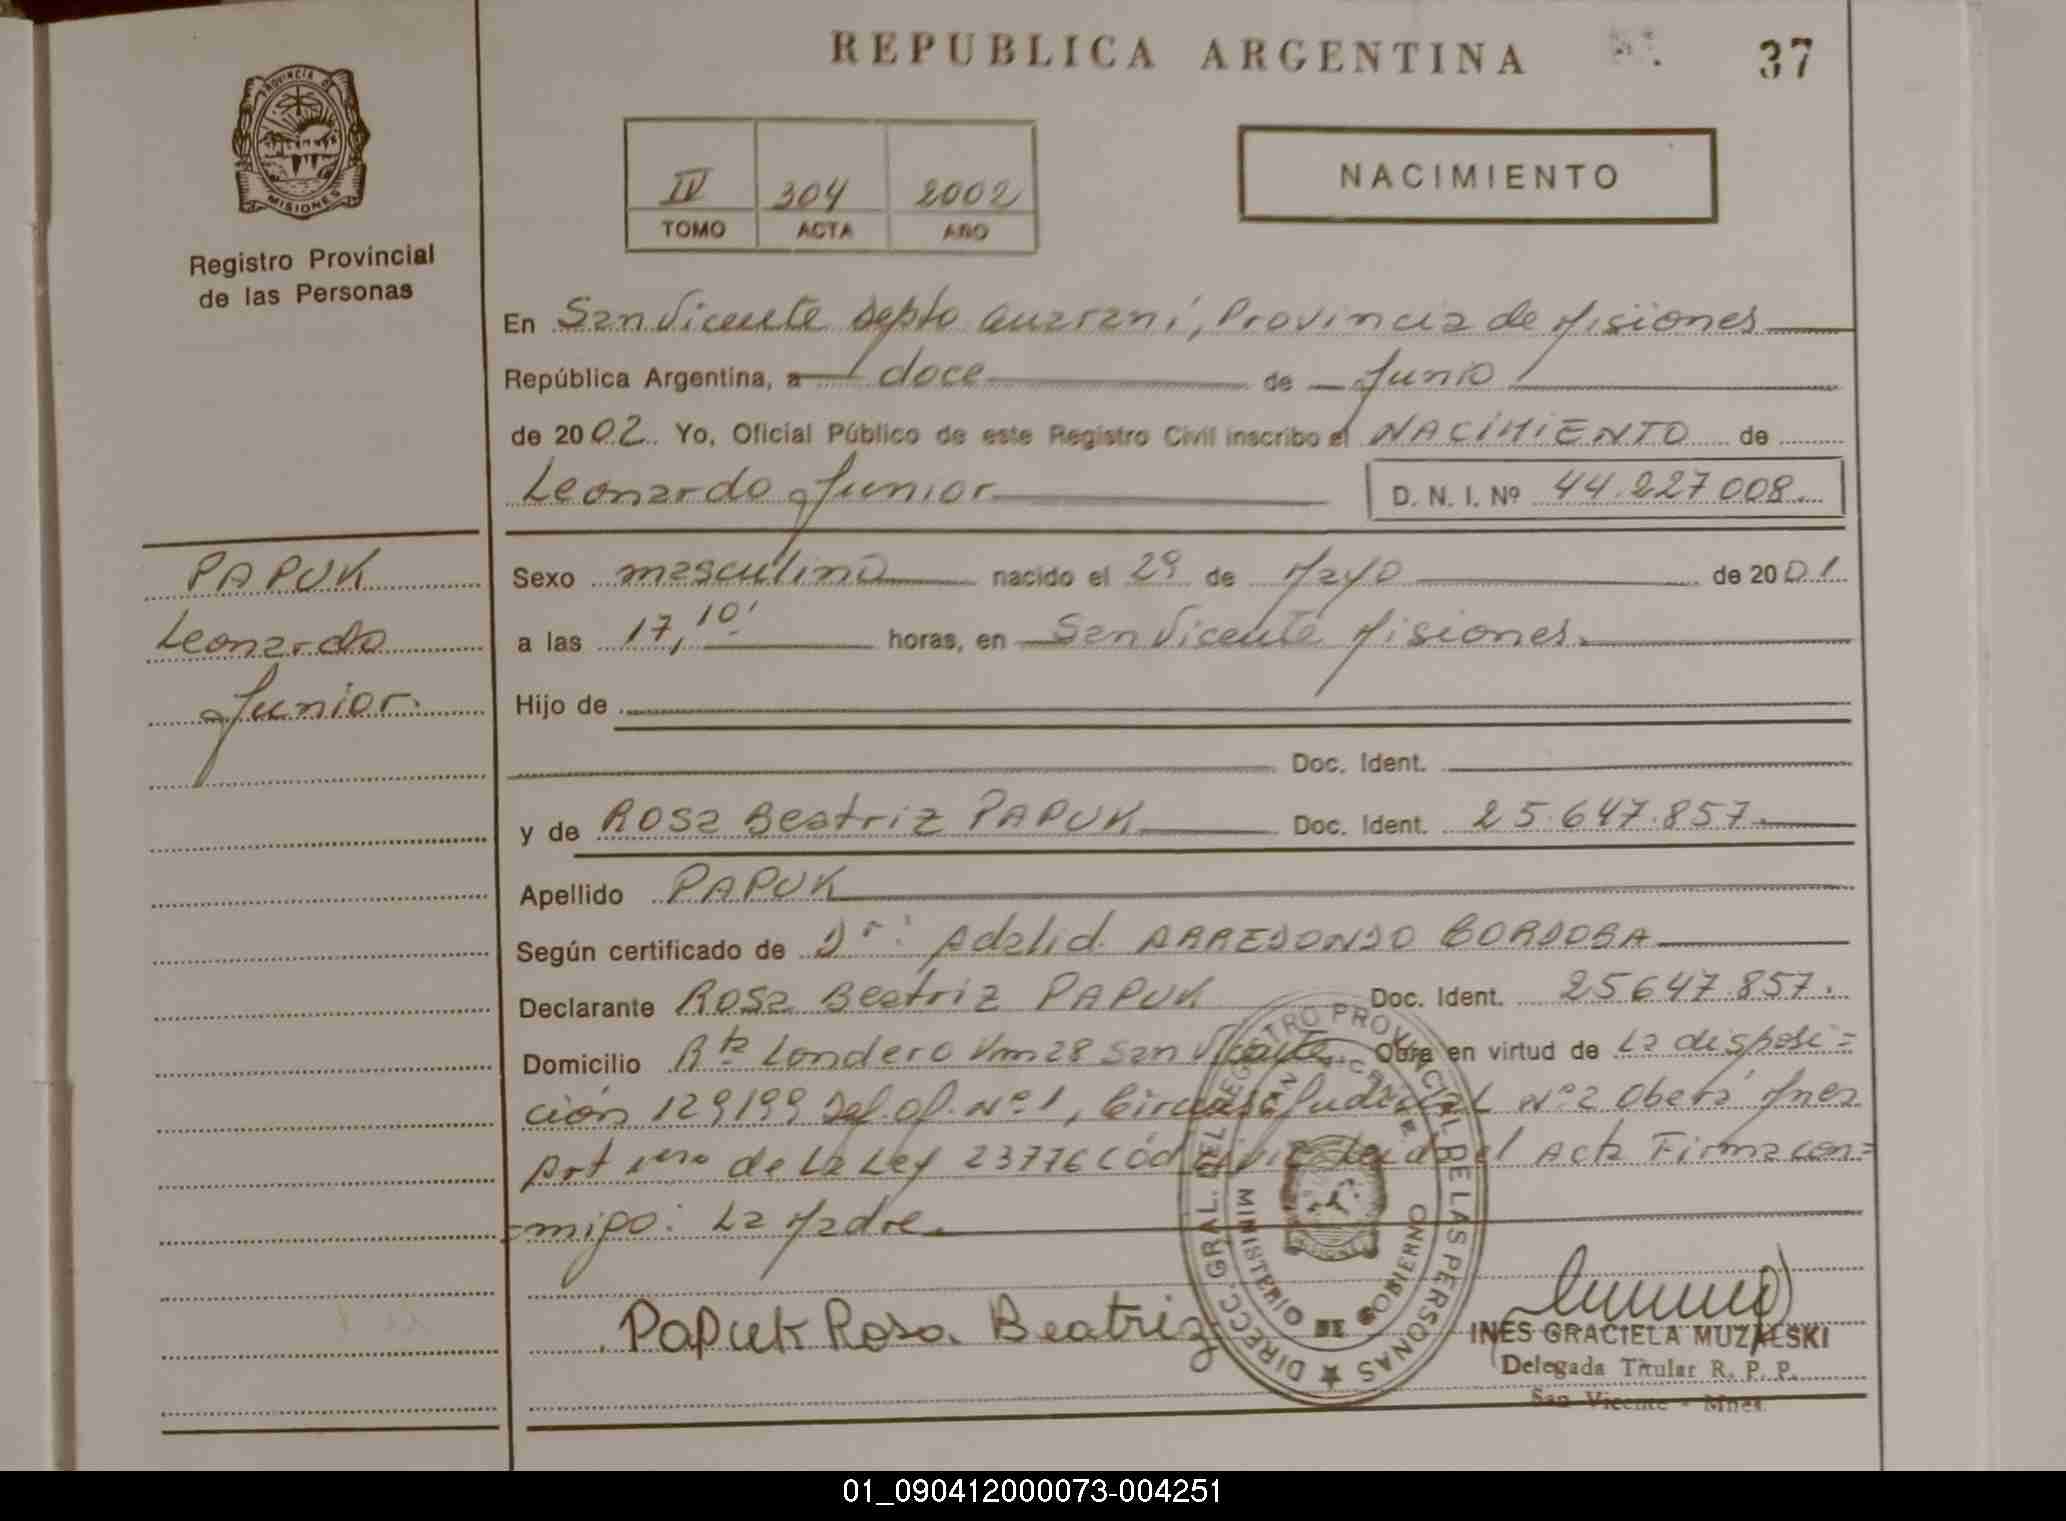 REPUBLICA ARGENTINA
37
PROVINCIA DE
MISIONES
Registro Provincial
de las Personas
IV 304 2002
TOMO ACTA AÑO
NACIMIENTO
En San Vicente Depto Guaraní, Provincia de Misiones
República Argentina, a doce de Junio
de 2002. Yo, Oficial Público de este Registro Civil inscribo el NACIMIENTO de
Leonardo Junior D. N. I. Nº 44.227008.
PAPUK
Leonardo
Junior.
Sexo masculino nacido el 29 de Mayo de 2001.
a las 17,10' horas, en San Vicente Misiones.
Hijo de
Doc. Ident.
y de Rosa Beatriz PAPUK Doc. Ident. 25.647.857.
Apellido PAPUK
Según certificado de Dr. Adalid ARREDONDO CORDOBA
Declarante Rosa Beatriz PAPUK Doc. Ident. 25647.857.
Domicilio Rta Londero Km 28 San Vicente. Obra en virtud de La disposi=
ción 129199 Def. of. Nº 1, Circunsc. Judicial Nº 2 Oberá Mnes
Art 1ero de La Ley 23776 Leida el Acta Firma con=
=migo: La Madre.
Papuk Rosa Beatriz
DIRECC. GRAL. DEL REGISTRO PROVINCIAL DE LAS PERSONAS
SAN VICENTE
MINISTERIO DE GOBIERNO
INES GRACIELA MUZALSKI
Delegada Titular R. P. P.
San Vicente - Mnes.
01_090412000073-004251